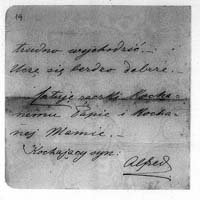 14
trudno wychodzić — i
Uczę się bardzo dobrze.
Całuję rączki Kocha-
nemu Papie i Kocha-
nej Mamie.
Kochający syn:
Alfred